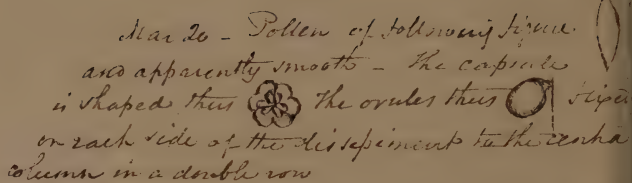 Mar 20 - Pollen of following figure.
and apparently smooth - The capsule
is shaped thus The ovules thus fixed
on each side of the dissepiment to the centra
column in a double row